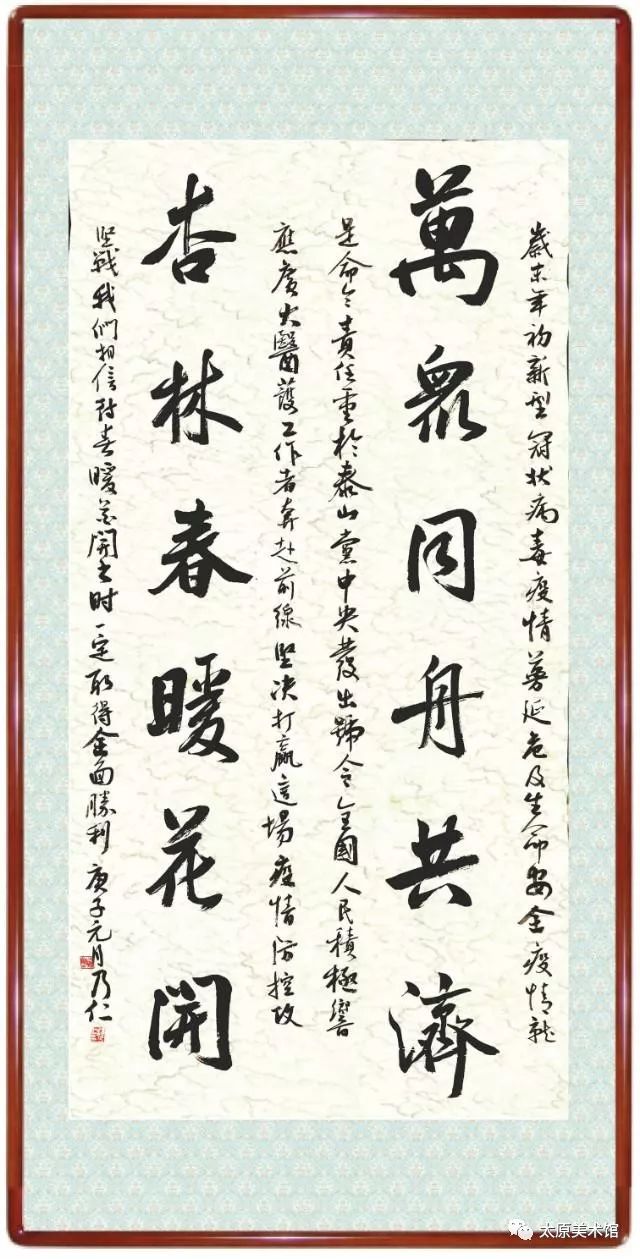 歲末年初新型冠狀病毒疫情蔓延危及生命安全疫情就
萬眾同舟共濟
是命令責任重於泰山黨中央發出號令全國人民積極響
應廣大醫護工作者奔赴前線堅决打贏這場疫情防控攻
杏林春暖花開
堅戰我們相信待春暖花開之時一定取得全面勝利 庚子元月乃仁
太原美术馆